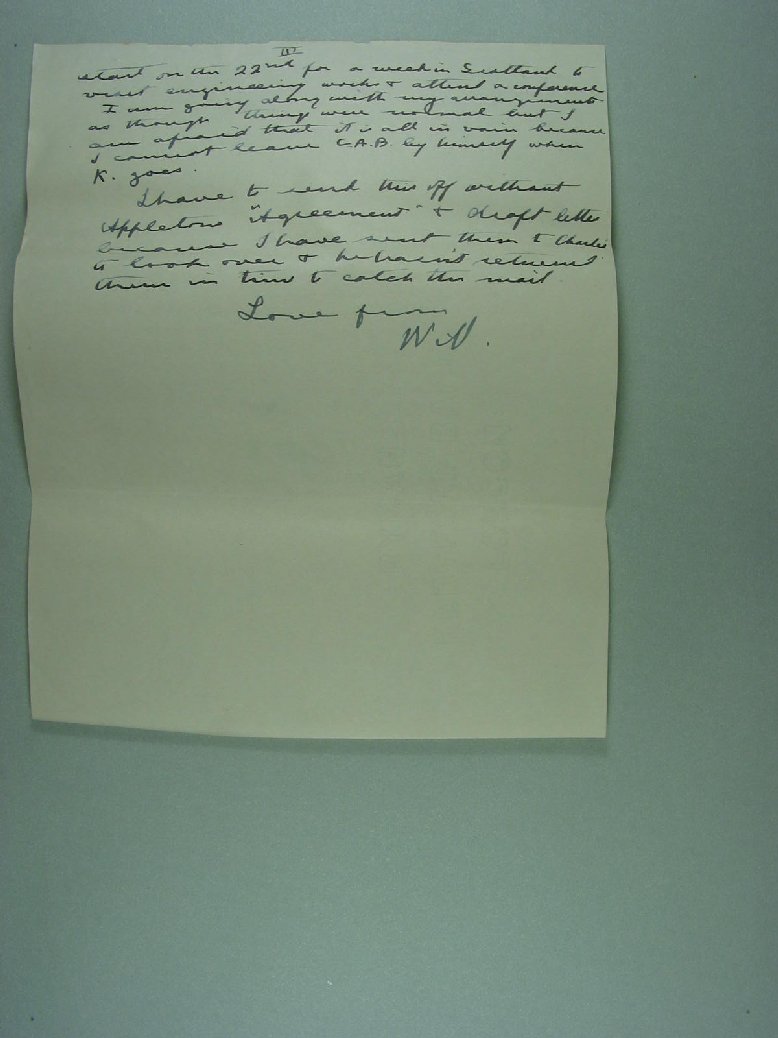 IV
start on the 22nd for a week in Scotland to
visit engineering works & attend a conference
I am going along with my arrangements
as though things were normal but I
am afraid that it is all in vain because
I cannot leave C.A.B. by himself when
K. goes.
I have to send this off without
Appletons "Agreement" & draft letter
because I have sent them to Charlie
to look over & he hasn't returned
them in time to catch this mail.
Love from